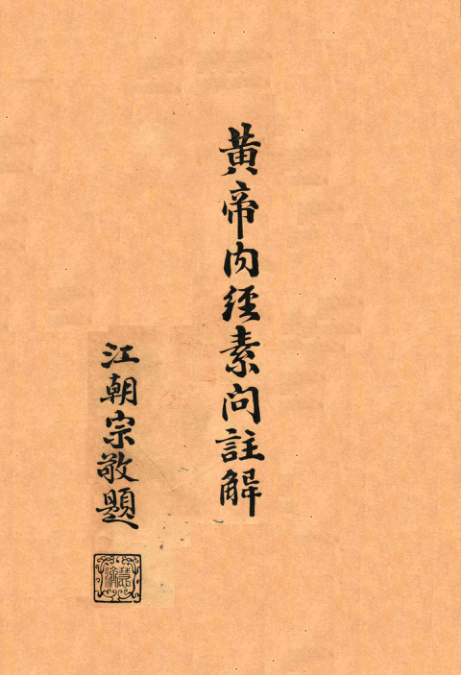 黄帝内经素问註解
江朝宗敬題